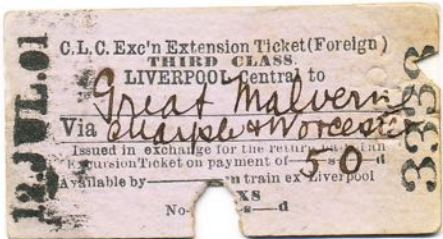 12.JUL.01
C.L.C. Exc'n Extension Ticket (Foreign)
THIRD CLASS.
LIVERPOOL Central to
Great Malvern
Via Marple & Worcester
Issued in exchange for the return of an
Excursion Ticket on payment of 5 s 0 d
Available by train ex Liverpool
XS
No s d
3333